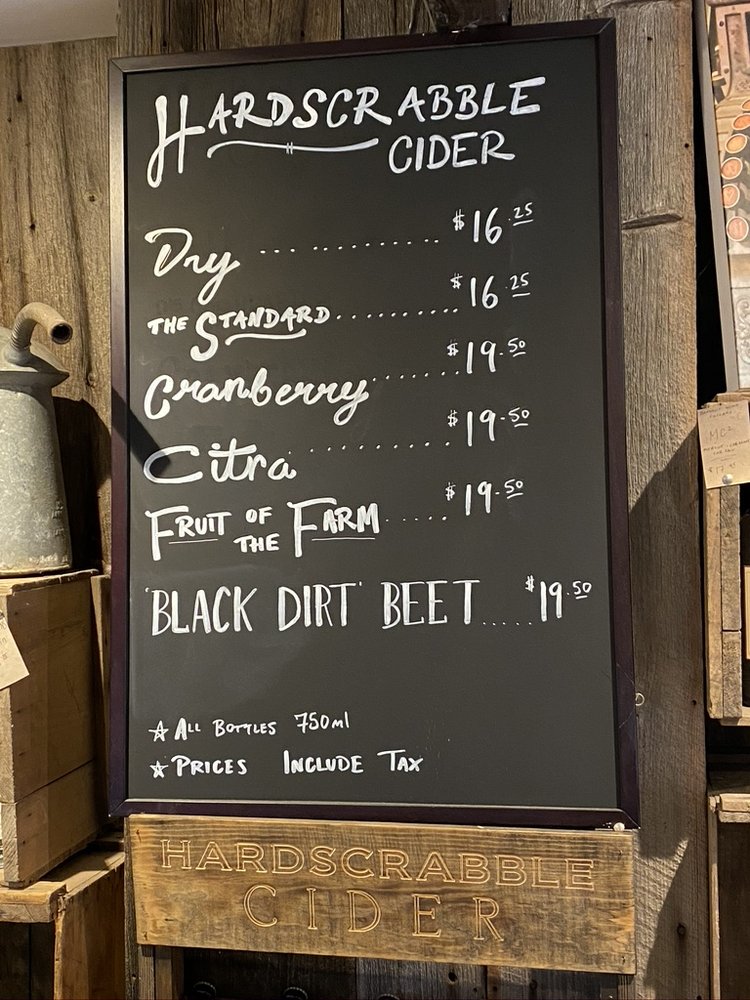 HARDSCRABBLE
CIDER
Dry ... ......... $16.25
THE STANDARD........... $16.25
Cranberry....... $19.50
Citra........... $19.50
FRUIT OF THE FARM..... $19.50
'BLACK DIRT' BEET..... $19.50
☆ ALL BOTTLES 750ml
☆ PRICES INCLUDE TAX
HARDSCRABBLE
CIDER
MC2